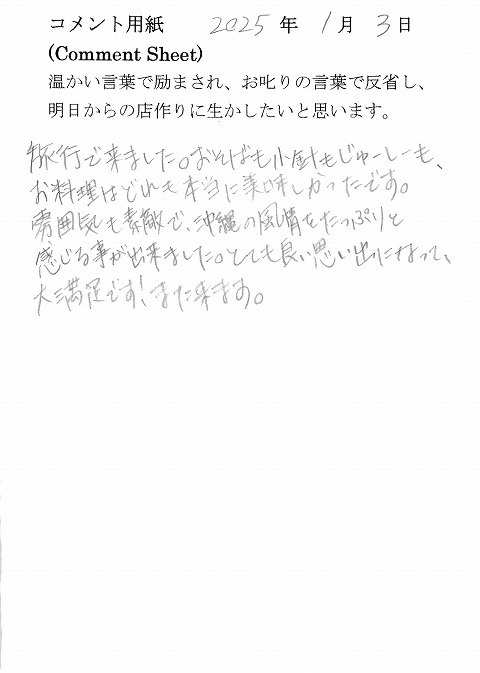 コメント用紙 2025 年 1 月 3 日
(Comment Sheet)
温かい言葉で励まされ、お叱りの言葉で反省し、
明日からの店作りに生かしたいと思います。
旅行で来ました。おそばも小鉢もじゅーしーも、
お料理はどれも本当に美味しかったです。
雰囲気も素敵で、沖縄の風情をたっぷりと
感じる事が出来ました。とても良い思い出になって、
大満足です！また来ます。